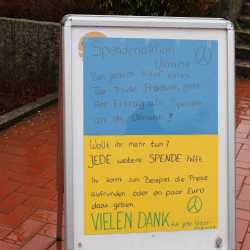 Spendenaktion
Ukraine
Von jedem
geht
der Ertrag als Spende
an die Ukraine!
Wollt ihr mehr tun?
JEDE weitere SPENDE hilft.
Ihr könnt zum Beispiel die Preise
aufrunden oder ein paar Euro
dazu geben.
VIELEN DANK für jede